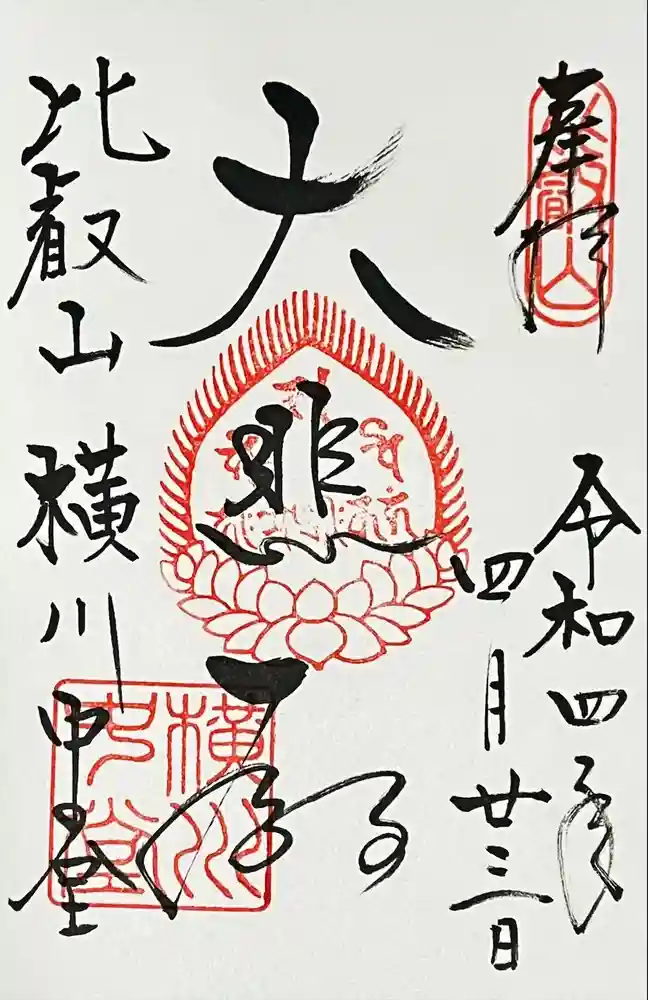 奉拝
比叡山
令和四年
四月廿三日
大悲殿
比叡山 横川中堂
横川中堂